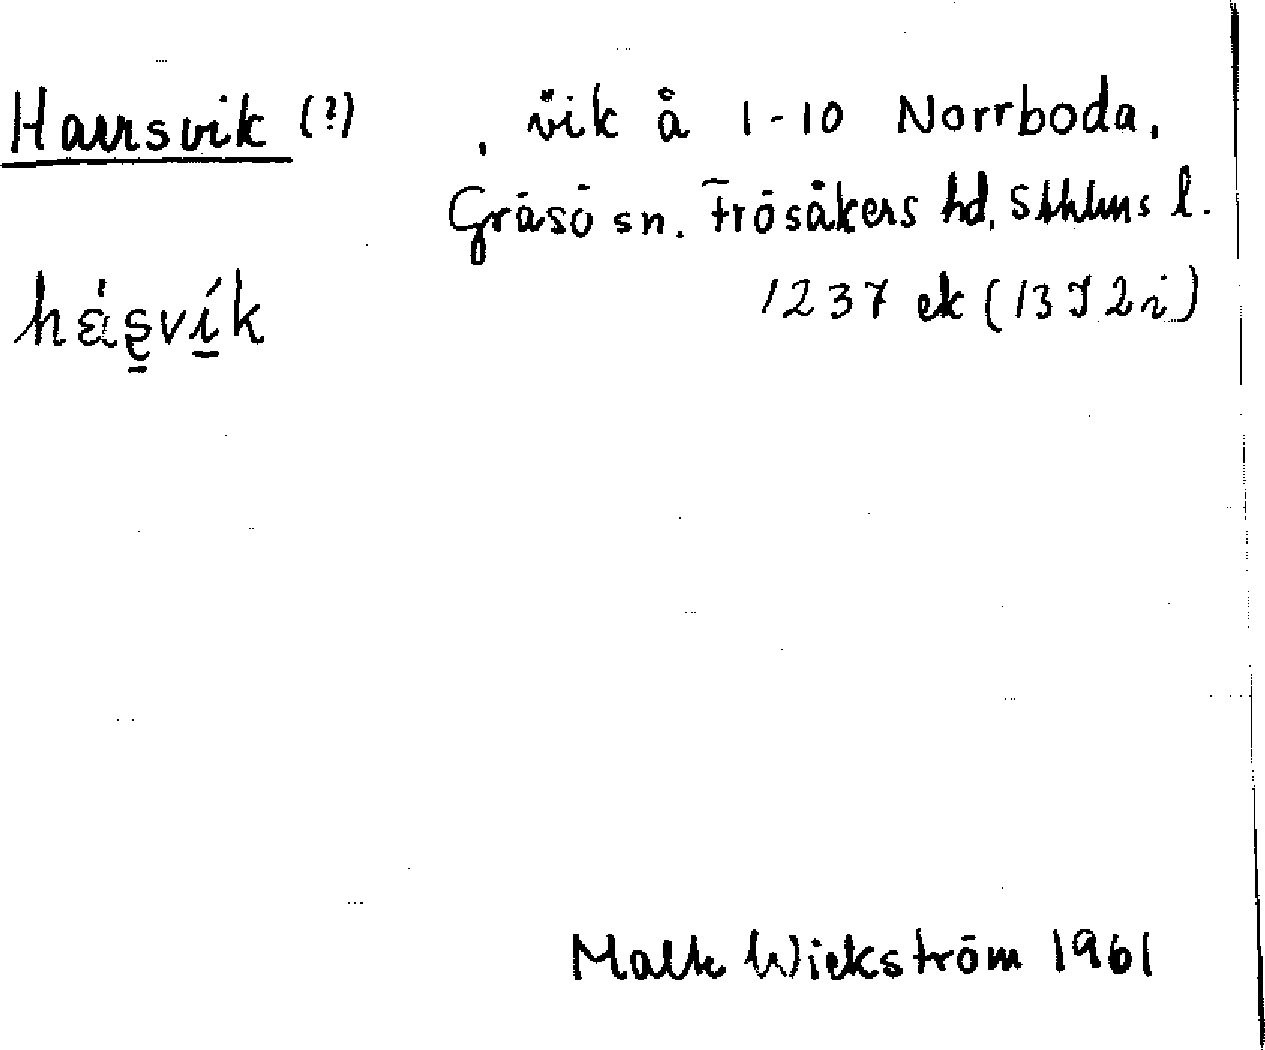 Harrsvik (?) , vik å 1-10 Norrboda,
Gräsö sn. Frösåkers hd, Sthlms l.
hásvík 1237 ek (13 I 2 i)
Malte Wickström 1961